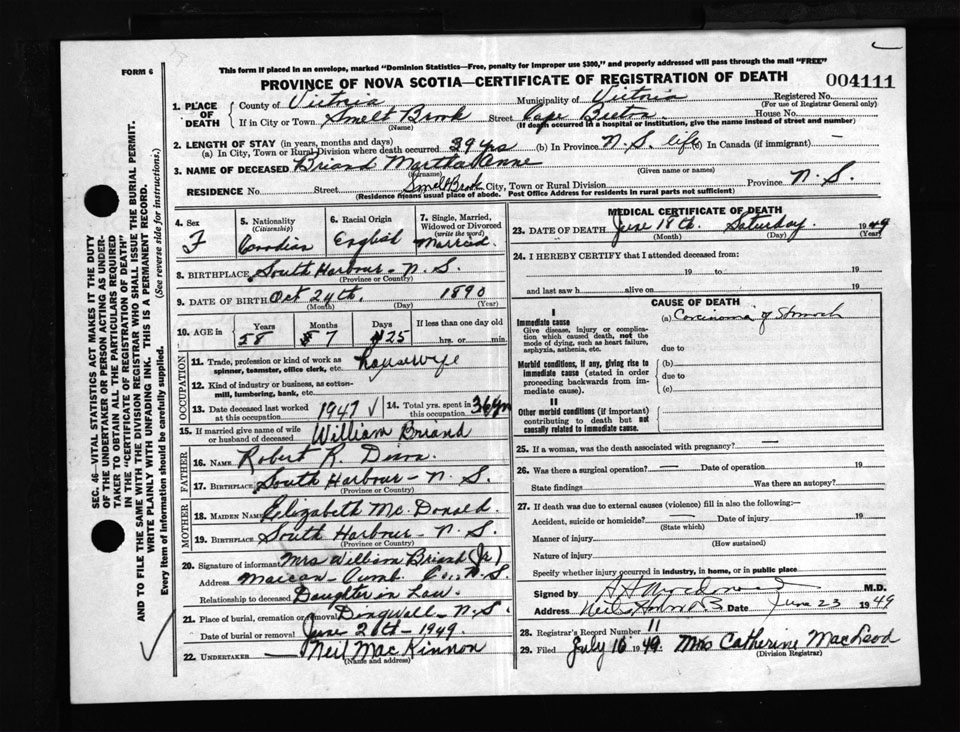 FORM 6
This form if placed in an envelope, marked "Dominion Statistics—Free, penalty for improper use $300," and properly addressed will pass through the mail "FREE"
PROVINCE OF NOVA SCOTIA—CERTIFICATE OF REGISTRATION OF DEATH
004111
1. PLACE OF DEATH
County of Victoria Municipality of Victoria Registered No.
(For use of Registrar General only)
If in City or Town Smelt Brook Street Cape Breton House No.
(Name) (If death occurred in a hospital or institution, give the name instead of street and number)
2. LENGTH OF STAY (in years, months and days)
(a) In City, Town or Rural Division where death occurred 39 yrs (b) In Province N.S. life (c) In Canada (if immigrant) —
3. NAME OF DECEASED Briand Martha Anne
(Surname) (Given name or names)
RESIDENCE No. Street Smelt Brook City, Town or Rural Division Province N. S.
(Residence means usual place of abode. Post Office Address for residents in rural parts not sufficient)
4. Sex F
5. Nationality (Citizenship) Canadian
6. Racial Origin English
7. Single, Married, Widowed or Divorced (write the word) Married
8. BIRTHPLACE South Harbour - N. S.
(Province or Country)
9. DATE OF BIRTH Oct 24th. 1890
(Month) (Day) (Year)
10. AGE in Years Months Days If less than one day old
58 7 25 hrs. or min.
OCCUPATION
11. Trade, profession or kind of work as spinner, teamster, office clerk, etc. housewife
12. Kind of industry or business, as cotton-mill, lumbering, bank, etc.
13. Date deceased last worked at this occupation 1947 √ 14. Total yrs. spent in this occupation 36 yrs
15. If married give name of wife or husband of deceased William Briand
FATHER
16. NAME Robert R.
17. Birthplace South Harbour - N. S.
MOTHER
18. MAIDEN NAME Elizabeth Mc. Donald
19. BIRTHPLACE South Harbour - N. S.
(Province or Country)
20. Signature of informant Mrs William Briand (Jr)
Address Maccan - Cumb. Co., N.S.
Relationship to deceased Daughter in Law
21. Place of burial, cremation or removal Dingwall - N. S.
Date of burial or removal June 20th - 1949.
22. UNDERTAKER — Neil Mac Kinnon
(Name and address)
MEDICAL CERTIFICATE OF DEATH
23. DATE OF DEATH June 18th. Saturday. 1949
(Month) (Day) (Year)
24. I HEREBY CERTIFY that I attended deceased from:
19 to 19
and last saw h alive on 19
CAUSE OF DEATH
I
Immediate cause
Give disease, injury or complication which caused death, not the mode of dying, such as heart failure, asphyxia, asthenia, etc.
(a) Carcinoma of Stomach
due to
Morbid conditions, if any, giving rise to immediate cause (stated in order proceeding backwards from immediate cause).
(b)
due to
(c)
II
Other morbid conditions (if important) contributing to death but not causally related to immediate cause.
25. If a woman, was the death associated with pregnancy? —
26. Was there a surgical operation? — Date of operation 19
State findings Was there an autopsy?
27. If death was due to external causes (violence) fill in also the following:—
Accident, suicide or homicide? — Date of injury 19
(State which)
Manner of injury
(How sustained)
Nature of injury
Specify whether injury occurred in industry, in home, or in public place
Signed by M.D.
Address Date June 23 1949
28. Registrar's Record Number 11
29. Filed July 16 1949. Mrs Catherine MacLeod
(Division Registrar)
SEC. 46—VITAL STATISTICS ACT MAKES IT THE DUTY
OF THE UNDERTAKER OR PERSON ACTING AS UNDER-
TAKER TO OBTAIN ALL THE PARTICULARS REQUIRED
IN THE "CERTIFICATE OF REGISTRATION OF DEATH"
AND TO FILE THE SAME WITH THE DIVISION REGISTRAR WHO SHALL ISSUE THE BURIAL PERMIT.
WRITE PLAINLY WITH UNFADING INK. THIS IS A PERMANENT RECORD.
Every item of information should be carefully supplied. (See reverse side for instructions.)